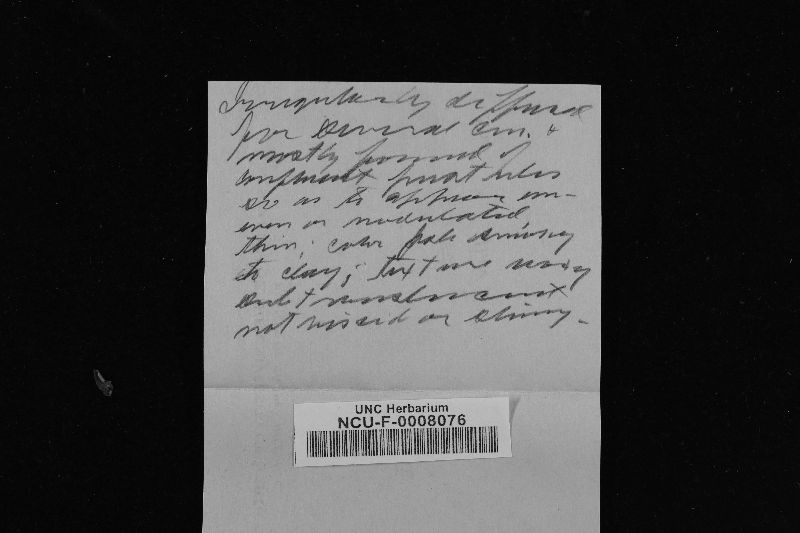 Irregularly diffused
for several cm. &
mostly formed of
confluent
so as to appear un-
even or nodulated
thin; color pale
to clay; texture waxy
subtranslucent
not viscid or slimy.
UNC Herbarium
NCU-F-0008076